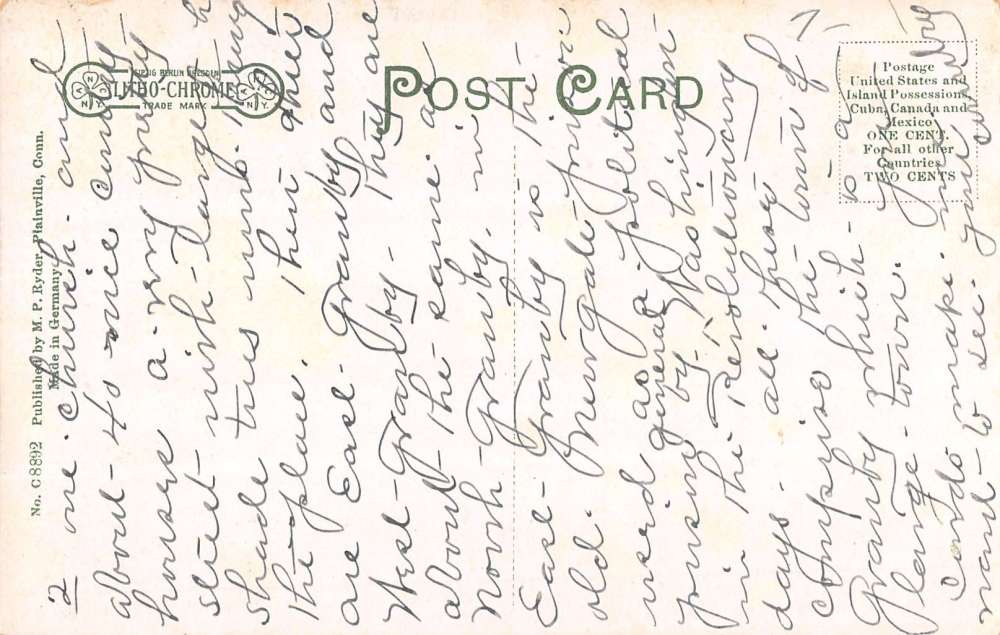 LEIPZIG BERLIN DRESDEN
LITHO-CHROME
TRADE MARK
N.Y.
N.Y.
POST CARD
Postage
United States and
Island Possessions,
Cuba, Canada and
Mexico
ONE CENT.
For all other
Countries
TWO CENTS
No. C8892 Published by M. P. Ryder, Plainville, Conn.
Made in Germany
2 one Church - and
about - 40 nice
houses a very pretty
street - with - large
shade trees
the place. Then there
are East - Granby and
West - Granby - They are
about - the same as
North - Granby. in
East - Granby is the -
old - Newgate prison
used as a political
general
prison by - Washington
in the Revolutionary
days. all - these
comprise the - town of
Granby which - is a
large - town. you
Cards make. me
want - to see. your country